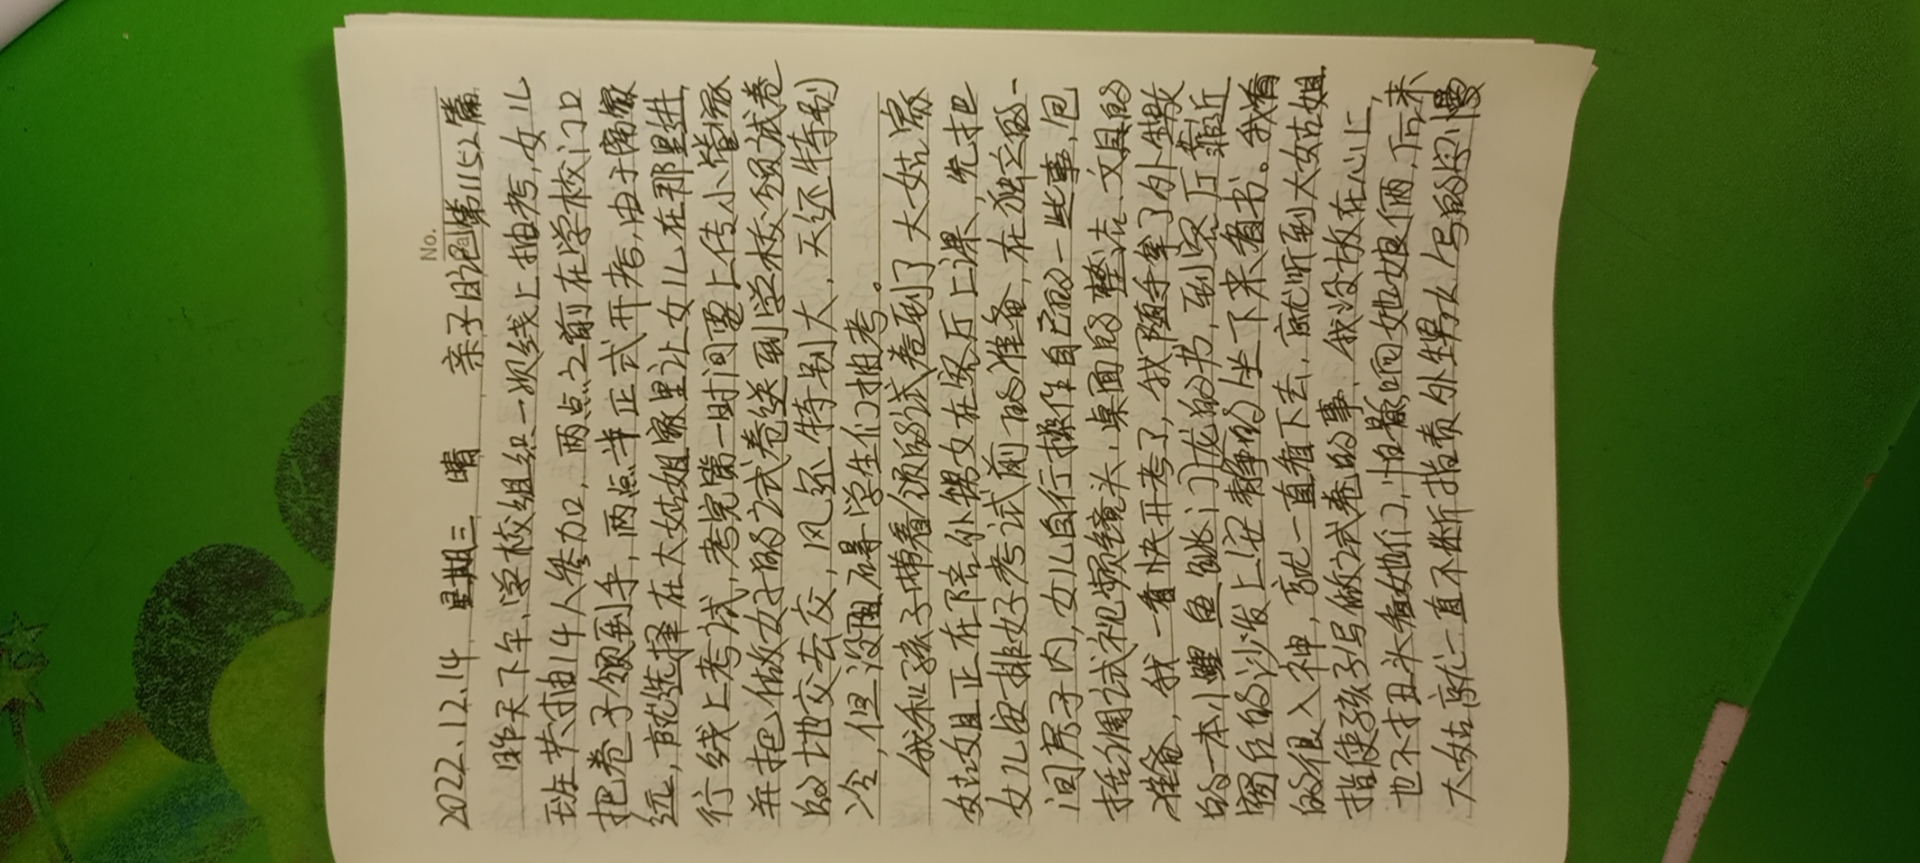 No.
2022.12.14 星期三 晴 亲子日记第1152篇
昨天下午,学校组织一次线上抽考,女儿
班共抽14人参加,两点之前在学校门口
把卷子领到手,两点半正式开考,由于离家
远,就选择在大姑姐家里让女儿在那里进
行线上考试,考完第一时间要上传小管家
并把做好的试卷送到学校领试卷
的地交去交,风还特别大,天还特别
冷,但没阻碍学生们抽考。
我和孩子带着领的试卷到了大姑家
姑姐正在陪外甥女在客厅上课,先把
女儿安排好考试前的准备,在独立的一
间房子内,女儿自行操作自己的一些事,包
括调试视频镜头、桌面的整洁、文具的
准备,我一看快开考了,我随手拿了外甥
的一本小鲤鱼跳龙门的书,到客厅靠近
的沙发上安静的坐下来看书。我看
的很入神,就一直看下去,就听到大姑姐
指使孩子写做试卷的事,我没放在心上,
也不扭头看她们,怕影响她娘俩,后来
大姑就一直不断指责外甥女写的字慢